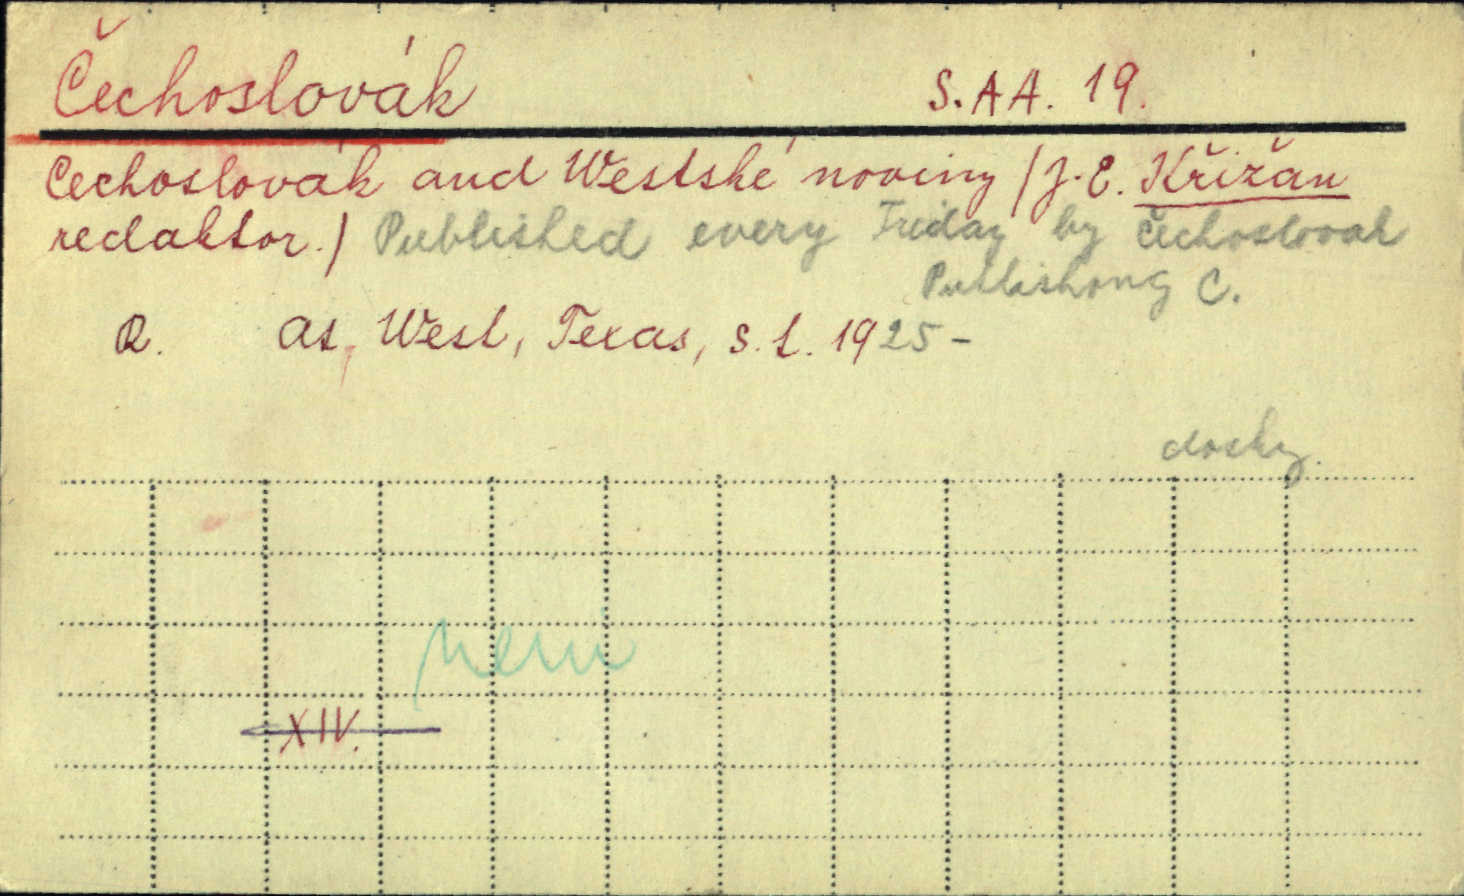 Čechoslovák S.AA. 19.
Čechoslovák and Westské noviny /J.E. Křižan
redaktor./ Published every Friday by Čechoslovak
Publishong C.
Q. As, West, Texas, s.t. 1925-
dosky.
není
XIV.